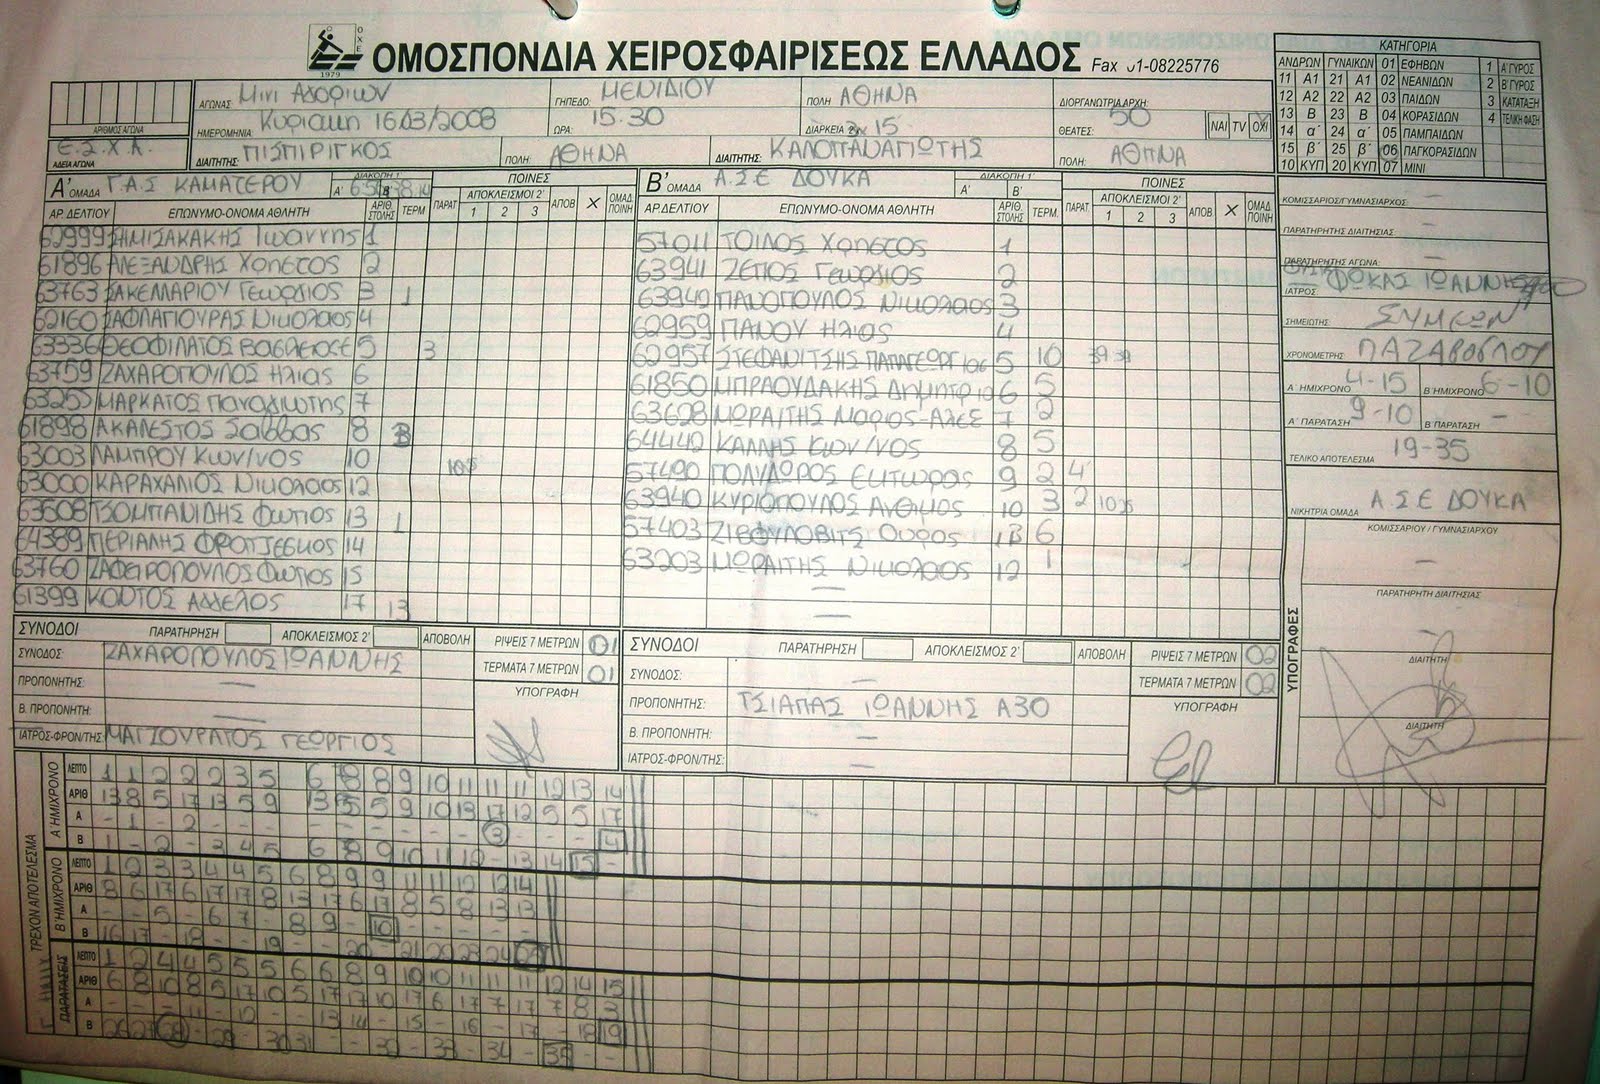 ΟΧΕ
1979
ΟΜΟΣΠΟΝΔΙΑ ΧΕΙΡΟΣΦΑΙΡΙΣΕΩΣ ΕΛΛΑΔΟΣ Fax 01-08225776
ΚΑΤΗΓΟΡΙΑ
ΑΝΔΡΩΝ ΓΥΝΑΙΚΩΝ 01 ΕΦΗΒΩΝ 1 Α΄ΓΥΡΟΣ
11 Α1 21 Α1 02 ΝΕΑΝΙΔΩΝ 2 Β΄ΓΥΡΟΣ
12 Α2 22 Α2 03 ΠΑΙΔΩΝ 3 ΚΑΤΑΤΑΞΗ
13 Β 23 Β 04 ΚΟΡΑΣΙΔΩΝ 4 ΤΕΛΙΚΗ ΦΑΣΗ
14 α΄ 24 α΄ 05 ΠΑΜΠΑΙΔΩΝ
15 β΄ 25 β΄ 06 ΠΑΓΚΟΡΑΣΙΔΩΝ
10 ΚΥΠ 20 ΚΥΠ 07 ΜΙΝΙ
ΑΡΙΘΜΟΣ ΑΓΩΝΑ
ΑΓΩΝΑΣ: Μινι Αγοριων ΓΗΠΕΔΟ: ΜΕΝΙΔΙΟΥ ΠΟΛΗ ΑΘΗΝΑ ΔΙΟΡΓΑΝΩΤΡΙΑ ΑΡΧΗ:
ΗΜΕΡΟΜΗΝΙΑ: Κυριακη 16/03/2008 ΩΡΑ: 15.30 ΔΙΑΡΚΕΙΑ 15 ΘΕΑΤΕΣ: 50 ΝΑΙ TV ΟΧΙ
Ε.Σ.Χ.Α. ΑΔΕΙΑ ΑΓΩΝΑ ΔΙΑΙΤΗΤΗΣ: ΠΙΣΠΙΡΙΓΚΟΣ ΠΟΛΗ: ΑΘΗΝΑ ΔΙΑΙΤΗΤΗΣ: ΚΑΛΟΠΑΝΑΓΙΩΤΗΣ ΠΟΛΗ: ΑΘΗΝΑ
Α΄ ΟΜΑΔΑ Γ.Α.Σ ΚΑΜΑΤΕΡΟΥ ΔΙΑΚΟΠΗ 1΄ Α΄ Β΄ ΠΟΙΝΕΣ
ΑΡ.ΔΕΛΤΙΟΥ ΕΠΩΝΥΜΟ-ΟΝΟΜΑ ΑΘΛΗΤΗ ΑΡΙΘ. ΣΤΟΛΗΣ ΤΕΡΜ ΠΑΡΑΤ ΑΠΟΚΛΕΙΣΜΟΙ 2΄ 1 2 3 ΑΠΟΒ X ΟΜΑΔ ΠΟΙΝΗ
62999 ΣΗΜΙΣΑΚΑΚΗΣ Ιωαννης 1
61896 ΑΛΕΞΑΝΔΡΗΣ Χρηστος 2
63763 ΣΑΚΕΛΛΑΡΙΟΥ Γεωργιος 3 1
62160 ΣΑΦΛΑΓΙΟΥΡΑΣ Νικολαος 4
63336 ΘΕΟΦΙΛΑΤΟΣ 5 3
63759 ΖΑΧΑΡΟΠΟΥΛΟΣ Ηλιας 6
63255 ΜΑΡΚΑΤΟΣ Παναγιωτης 7
61898 ΑΚΑΛΕΣΤΟΣ Σαββας 8
63003 ΛΑΜΠΡΟΥ Κων/νος 10
63000 ΚΑΡΑΧΑΛΙΟΣ Νικολαος 12
63508 ΤΣΟΜΠΑΝΙΔΗΣ Φωτιος 13 1
64389 ΠΕΡΙΑΛΗΣ 14
63760 ΖΑΦΕΙΡΟΠΟΥΛΟΣ Φωτιος 15
61399 ΚΟΝΤΟΣ Αγγελος 17 13
Β΄ ΟΜΑΔΑ Α.Σ.Ε ΔΟΥΚΑ ΔΙΑΚΟΠΗ 1΄ Α΄ Β΄ ΠΟΙΝΕΣ
ΑΡ.ΔΕΛΤΙΟΥ ΕΠΩΝΥΜΟ-ΟΝΟΜΑ ΑΘΛΗΤΗ ΑΡΙΘ. ΣΤΟΛΗΣ ΤΕΡΜ. ΠΑΡΑΤ. ΑΠΟΚΛΕΙΣΜΟΙ 2΄ 1 2 3 ΑΠΟΒ. X ΟΜΑΔ ΠΟΙΝΗ
57011 ΤΟΙΛΟΣ Χρηστος 1
63941 ΖΕΠΟΣ Γεωργιος 2
63942 ΠΑΝΟΠΟΥΛΟΣ Νικολαος 3
62959 ΠΑΝΟΥ Ηλιας 4
62957 ΣΤΕΦΑΝΙΤΣΗΣ 5 10
61850 ΜΠΡΑΟΥΔΑΚΗΣ Δημητριο 6 5
63628 ΜΩΡΑΙΤΗΣ Μαριος-Αλεξ 7 2
64442 ΚΑΛΛΗΣ Κων/νος 8 5
57490 ΠΟΛΥΔΩΡΟΣ Εκτωρας 9 2 4
63940 ΚΥΡΙΟΠΟΥΛΟΣ Ανθιμος 10 3
57403 6
63203 ΜΩΡΑΙΤΗΣ Νικολαος 12 1
ΣΥΝΟΔΟΙ ΠΑΡΑΤΗΡΗΣΗ ΑΠΟΚΛΕΙΣΜΟΣ 2΄ ΑΠΟΒΟΛΗ ΡΙΨΕΙΣ 7 ΜΕΤΡΩΝ 01
ΣΥΝΟΔΟΣ: ΖΑΧΑΡΟΠΟΥΛΟΣ ΙΩΑΝΝΗΣ ΤΕΡΜΑΤΑ 7 ΜΕΤΡΩΝ 01
ΠΡΟΠΟΝΗΤΗΣ: — ΥΠΟΓΡΑΦΗ
Β. ΠΡΟΠΟΝΗΤΗ: —
ΙΑΤΡΟΣ-ΦΡΟΝ/ΤΗΣ: ΜΑΓΣΟΥΡΑΤΟΣ ΓΕΩΡΓΙΟΣ
ΣΥΝΟΔΟΙ ΠΑΡΑΤΗΡΗΣΗ ΑΠΟΚΛΕΙΣΜΟΣ 2΄ ΑΠΟΒΟΛΗ ΡΙΨΕΙΣ 7 ΜΕΤΡΩΝ 02
ΣΥΝΟΔΟΣ: — ΤΕΡΜΑΤΑ 7 ΜΕΤΡΩΝ 02
ΠΡΟΠΟΝΗΤΗΣ: ΤΣΙΑΠΑΣ ΙΩΑΝΝΗΣ Α30 ΥΠΟΓΡΑΦΗ
Β. ΠΡΟΠΟΝΗΤΗ: —
ΙΑΤΡΟΣ-ΦΡΟΝ/ΤΗΣ: —
ΚΟΜΙΣΣΑΡΙΟΣ/ΓΥΜΝΑΣΙΑΡΧΟΣ: —
ΠΑΡΑΤΗΡΗΤΗΣ ΔΙΑΙΤΗΣΙΑΣ: —
ΠΑΡΑΤΗΡΗΤΗΣ ΑΓΩΝΑ: —
ΙΑΤΡΟΣ: ΦΩΚΑΣ ΙΩΑΝΝΗΣ
ΣΗΜΕΙΩΤΗΣ: ΣΥΜΕΩΝ
ΧΡΟΝΟΜΕΤΡΗΣ ΠΑΖΑΡΟΓΛΟΥ
Α΄ ΗΜΙΧΡΟΝΟ 4-15 Β΄ΗΜΙΧΡΟΝΟ 6-10
Α΄ ΠΑΡΑΤΑΣΗ 9-10 Β΄ΠΑΡΑΤΑΣΗ —
ΤΕΛΙΚΟ ΑΠΟΤΕΛΕΣΜΑ 19-35
ΝΙΚΗΤΡΙΑ ΟΜΑΔΑ Α.Σ.Ε ΔΟΥΚΑ
ΥΠΟΓΡΑΦΕΣ
ΚΟΜΙΣΣΑΡΙΟΥ / ΓΥΜΝΑΣΙΑΡΧΟΥ
ΠΑΡΑΤΗΡΗΤΗ ΔΙΑΙΤΗΣΙΑΣ
ΔΙΑΙΤΗΤΗ
ΔΙΑΙΤΗΤΗ
ΤΡΕΧΟΝ ΑΠΟΤΕΛΕΣΜΑ
Α ΗΜΙΧΡΟΝΟ
ΛΕΠΤΟ 1 1 2 2 2 3 5 6 7 8 8 9 10 11 11 11 12 13 14
ΑΡΙΘ
Α
Β
Β΄ ΗΜΙΧΡΟΝΟ
ΛΕΠΤΟ 1 2 3 3 4 4 5 6 8 9 9 11 11 12 12 14
ΑΡΙΘ 8 6 17 6 17 17 8 13 17 6 17 8 5 8 13 13
Α - - 5 - 6 7 - 8 9 - 10
Β 16 17 - 18 - - 19 - - 20 - 21 22 23 24 25
ΠΑΡΑΤΑΣΕΙΣ
ΛΕΠΤΟ 1 2 4 4 5 5 5 6 6 8 9 10 10 11 11 11 12 14 15
ΑΡΙΘ 6 8 10 8 5 17 10 5 17 17 10 17 6 17 7 17 7 8 3
Α
Β